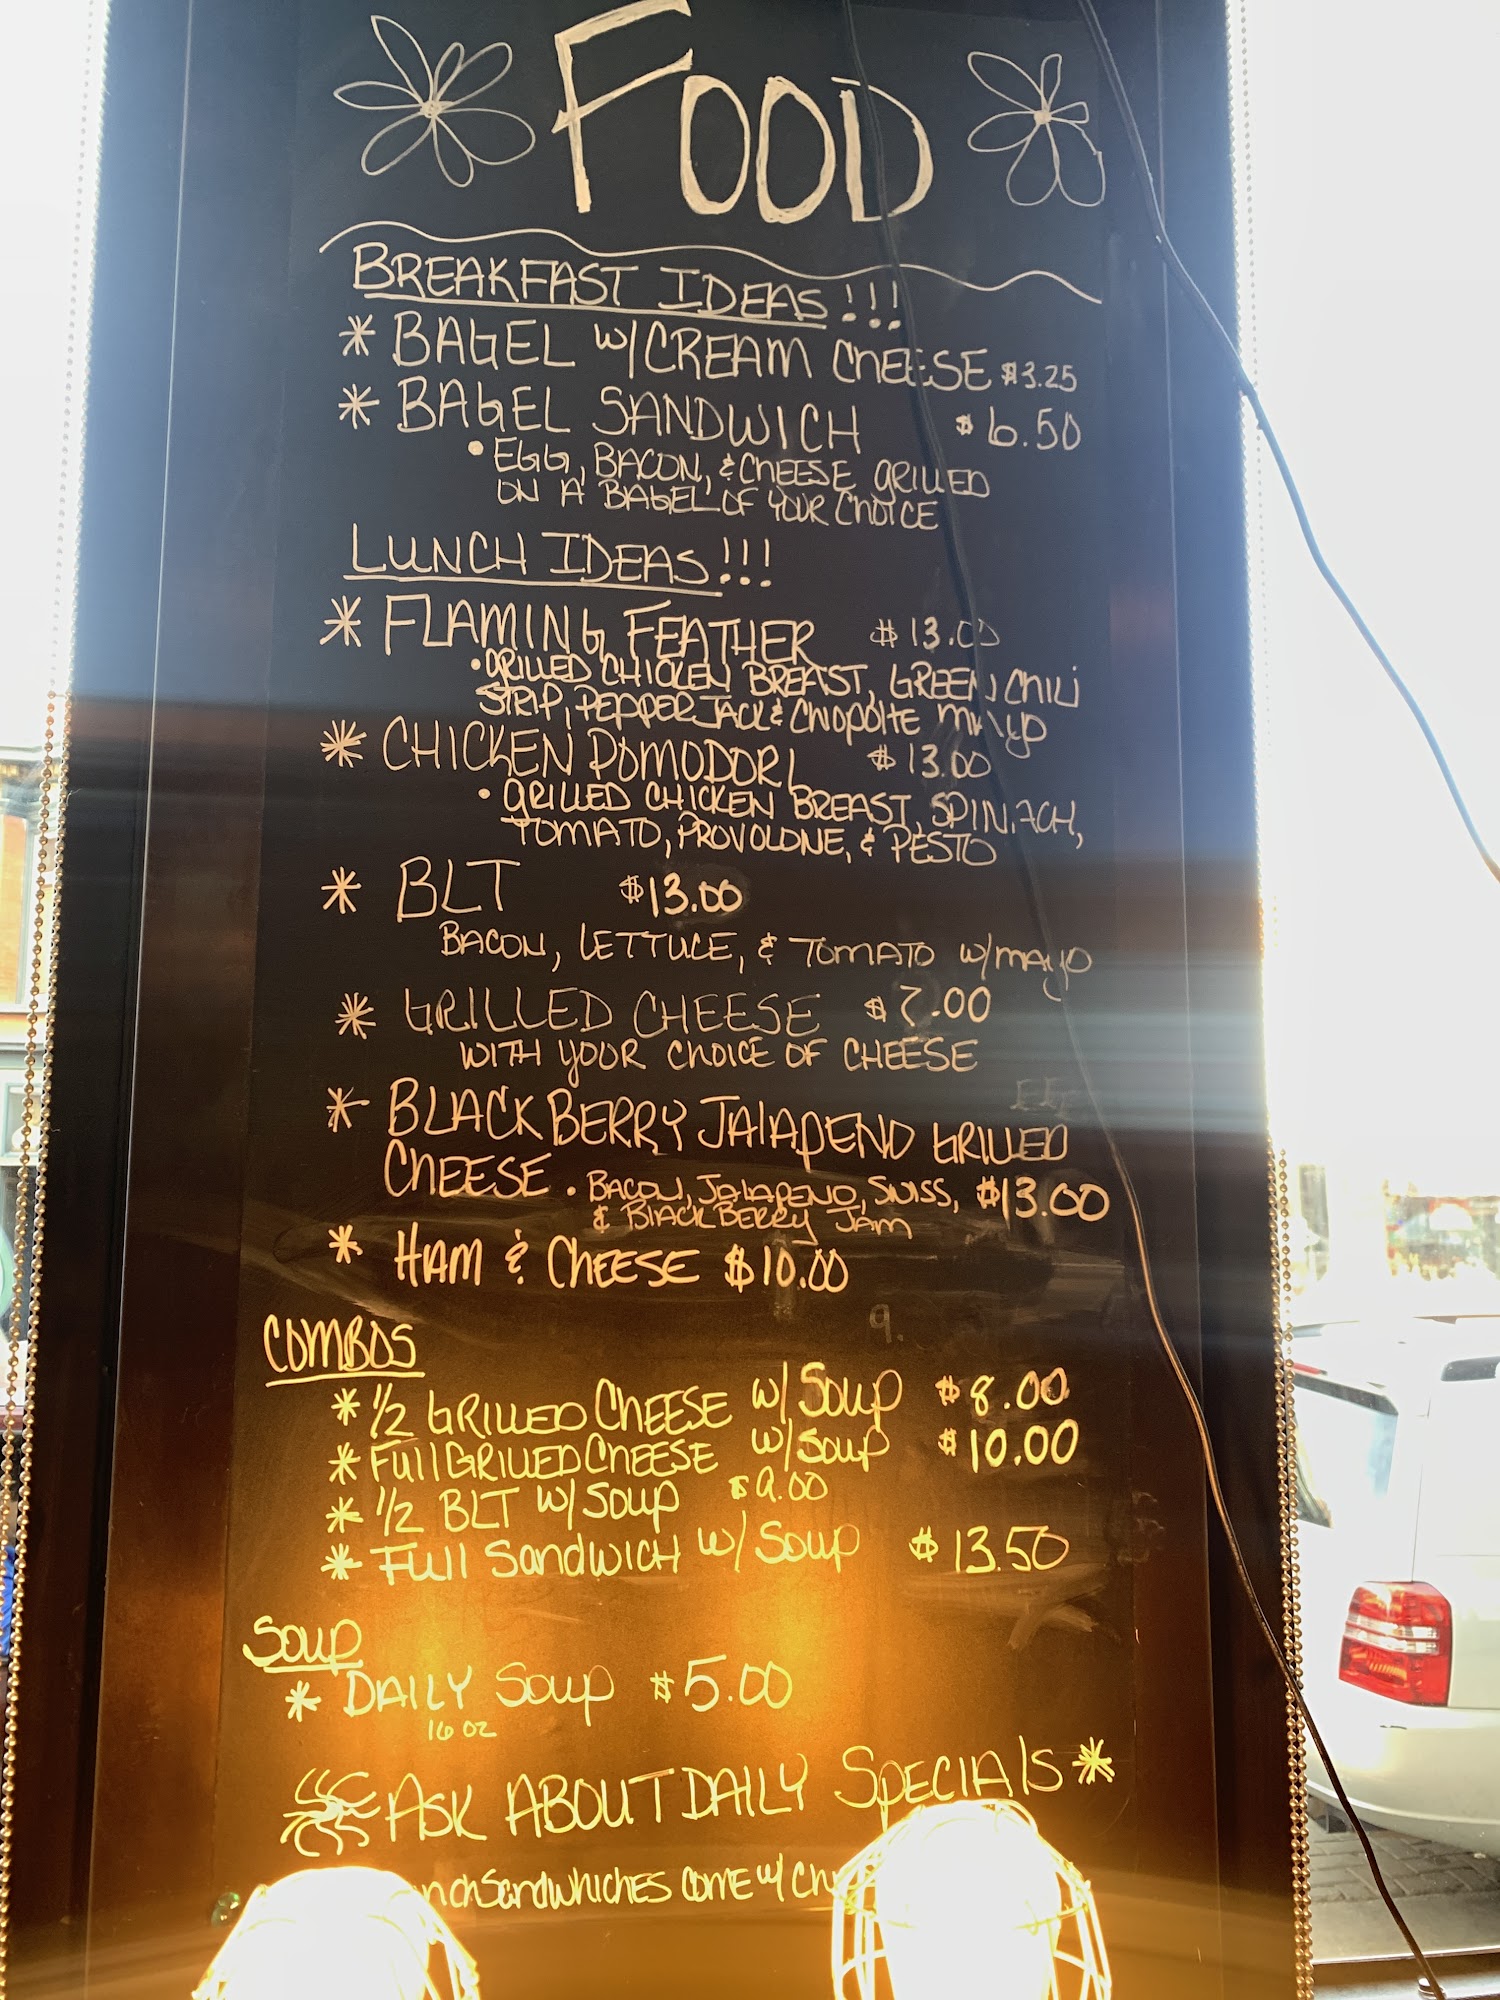 FOOD
BREAKFAST IDEAS!!!
* BAGEL W/CREAM CHEESE $3.25
* BAGEL SANDWICH $6.50
• EGG, BACON, & CHEESE GRILLED
ON A BAGEL OF YOUR CHOICE
LUNCH IDEAS!!!
* FLAMING FEATHER $13.00
• GRILLED CHICKEN BREAST, GREEN CHILI
STRIP, PEPPER JACK & CHIPOLTE MAYO
* CHICKEN POMODORI $13.00
• GRILLED CHICKEN BREAST, SPINACH,
TOMATO, PROVOLONE, & PESTO
* BLT $13.00
BACON, LETTUCE, & TOMATO W/MAYO
* GRILLED CHEESE $7.00
WITH YOUR CHOICE OF CHEESE
* BLACKBERRY JALAPENO GRILLED
CHEESE • BACON, JALAPENO, SWISS, $13.00
& BLACKBERRY JAM
* HAM & CHEESE $10.00
COMBOS
* 1/2 GRILLED CHEESE W/ SOUP $8.00
* Full GRILLED CHEESE W/ SOUP $10.00
* 1/2 BLT W/ SOUP $9.00
* Full SANDWICH W/ SOUP $13.50
SOUP
* DAILY SOUP $5.00
16 OZ
* ASK ABOUT DAILY SPECIALS *
SANDWHICHES COME W/